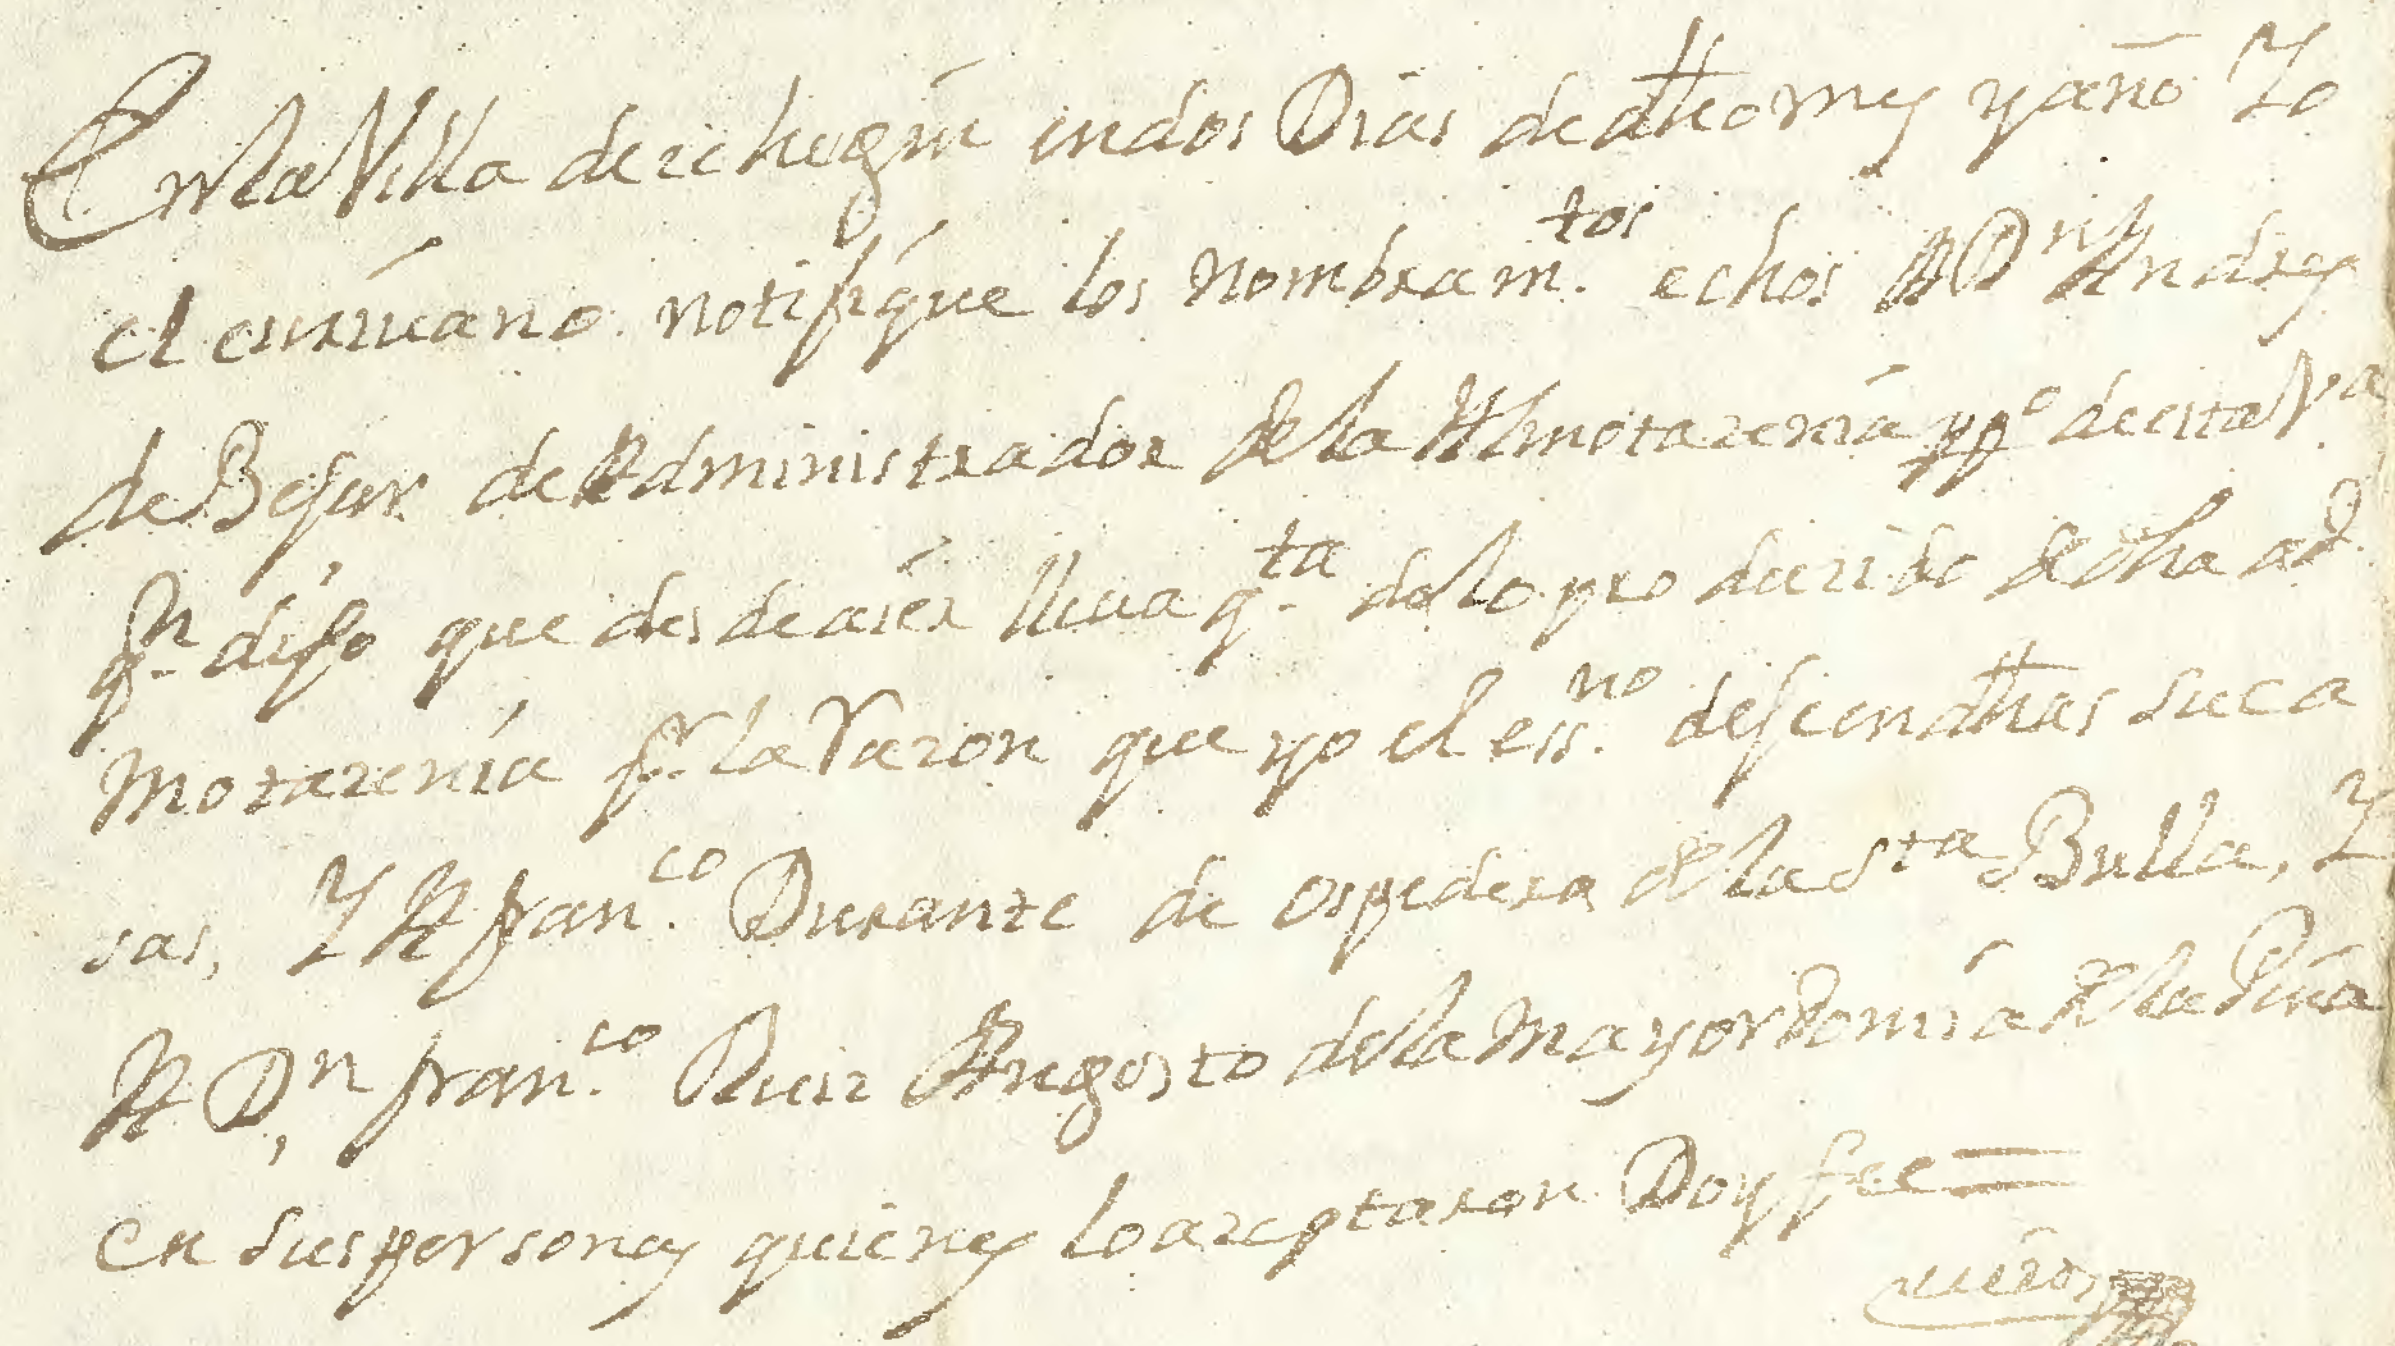 En la Villa de zehegin en dos Dias de dho mes y año Yo
el escrivano notifique los Nombram.tos echos A Dn Andres
de Bejar de Administrador de la Almotazenia y po de esta Va
q.n dijo que desde aier lleua q.ta de lo produzido de dha ad.
Motazenia pr. la Razon que yo el ess.no dejé en dhas su ca
sas, Y A fran.co Durante de ospedera de la Sta Bulla, Y
A Dn fran.co Ruiz Angosto de la Mayordomia de la Pura
en sus personas quienes lo azeptaron Doy fee =